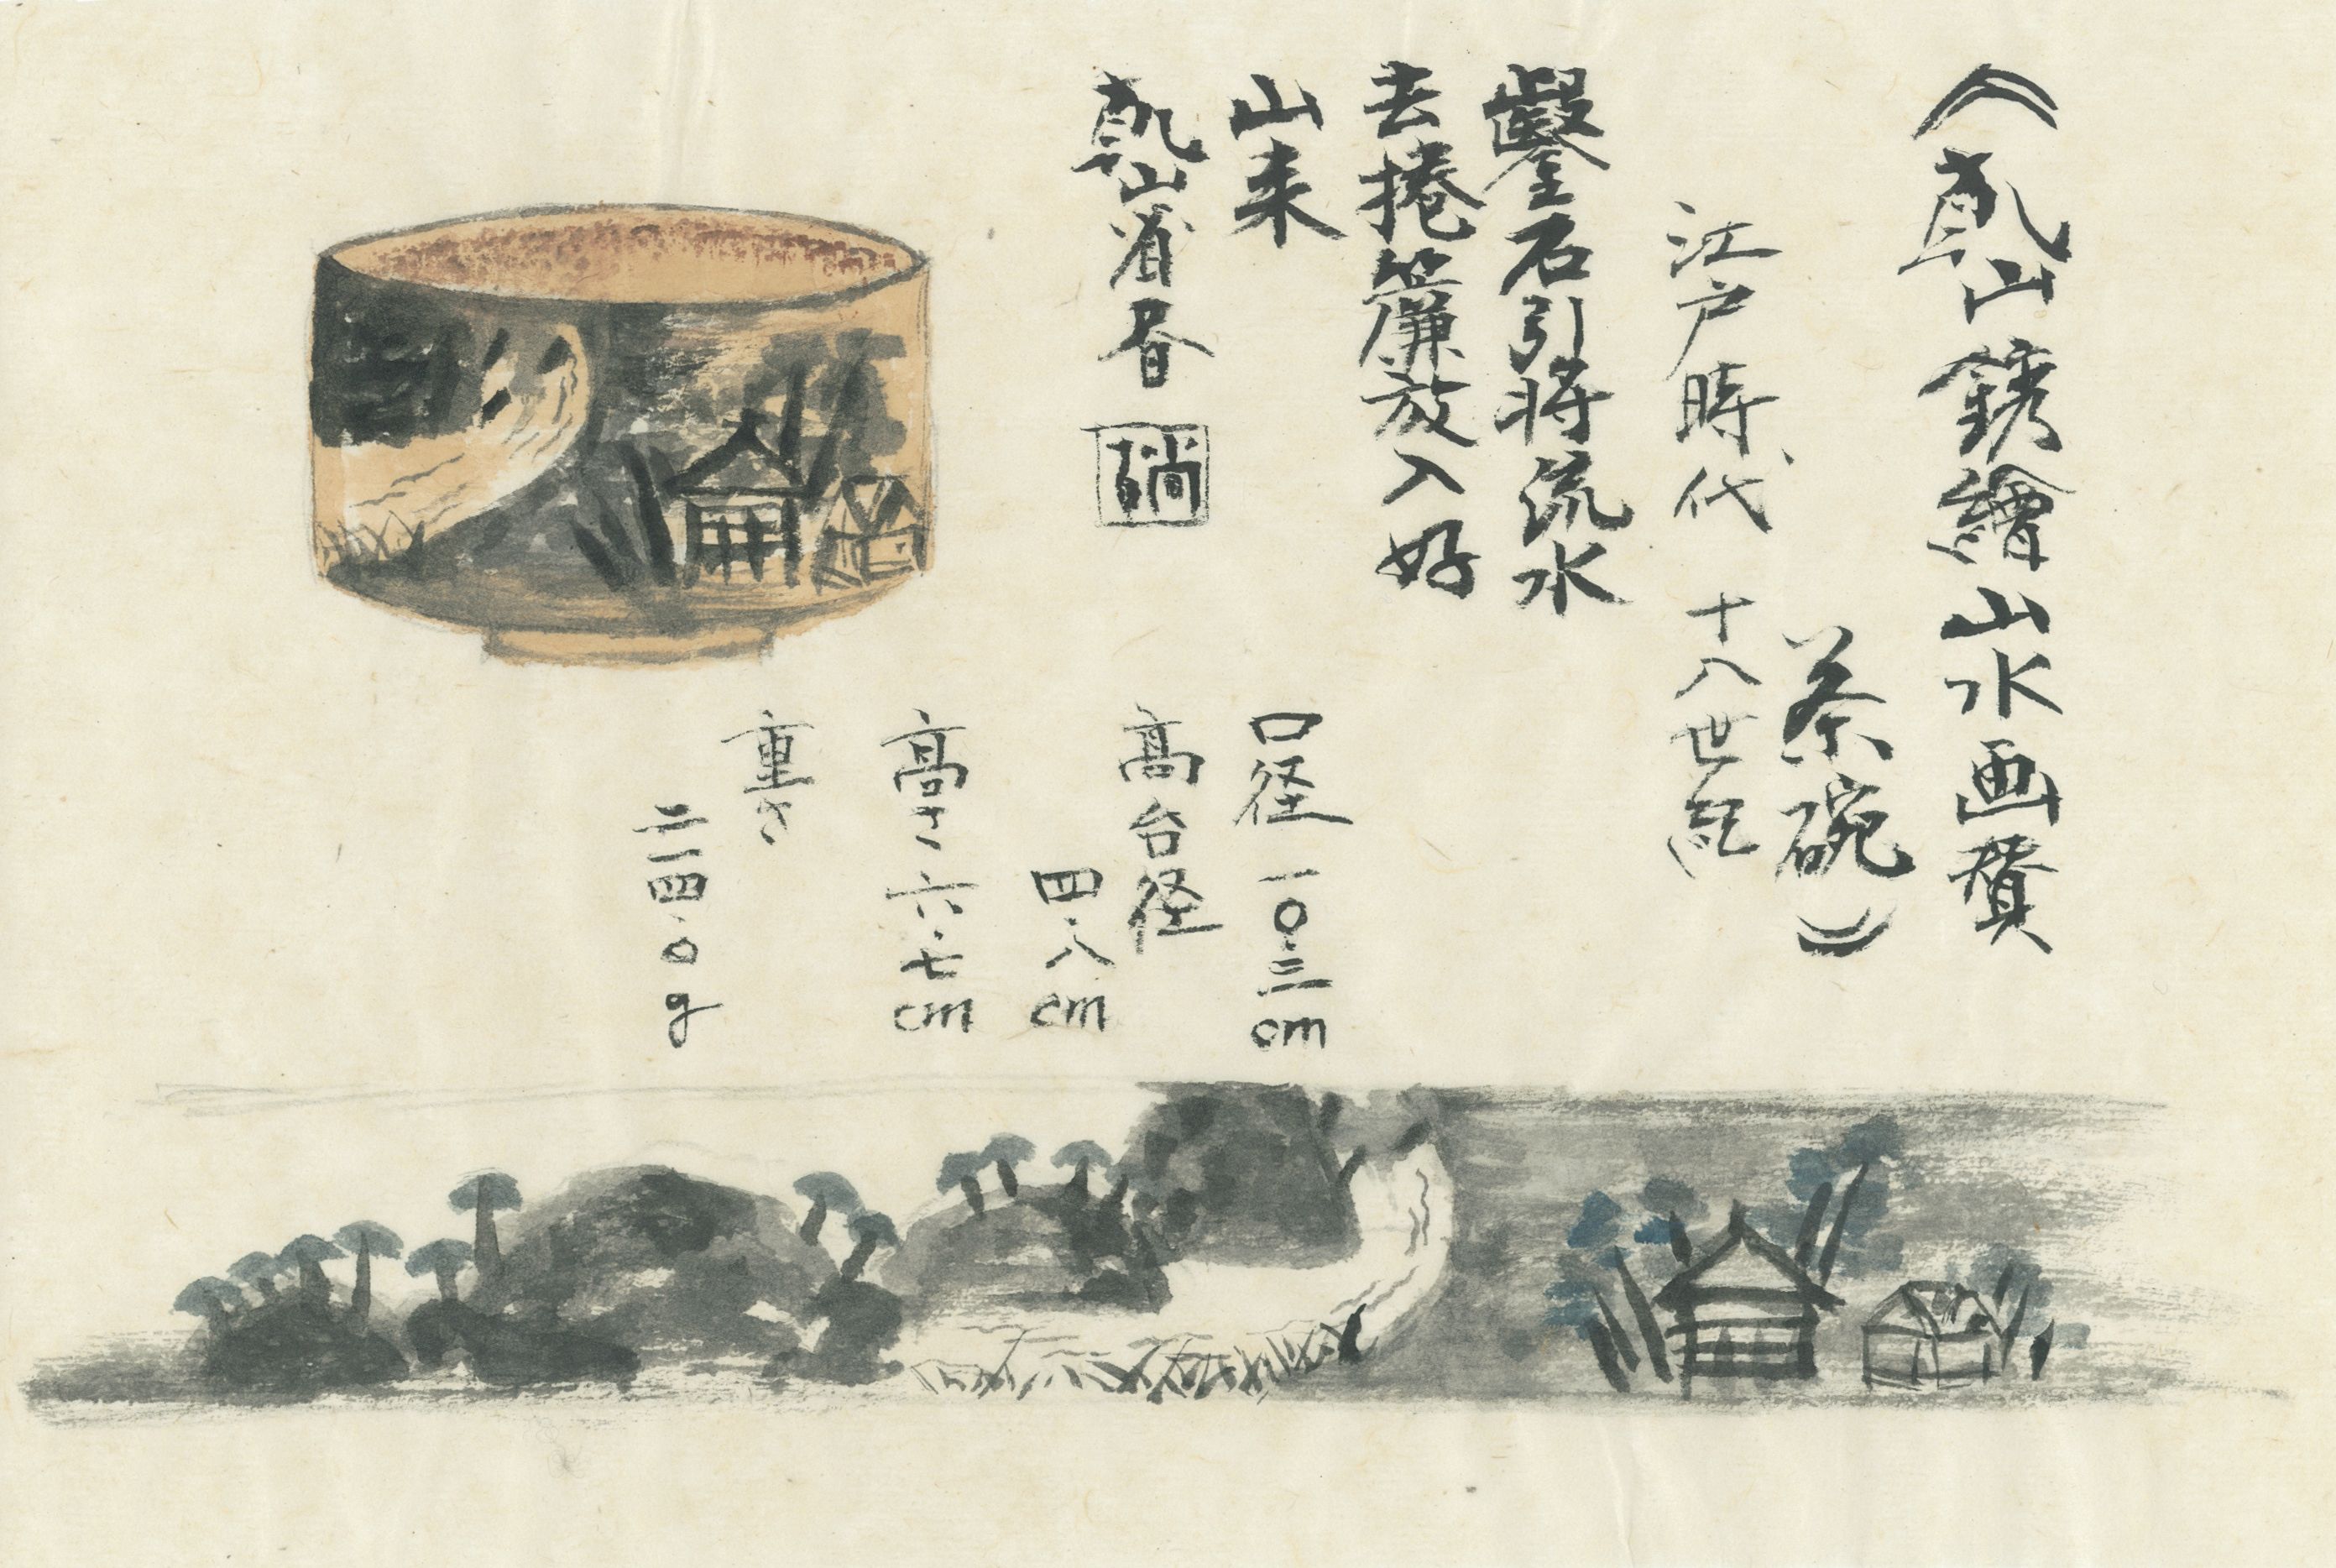 《乹山銹繪山水画賛
茶碗》
江戸時代 十八世紀
鑿石引将流水
去捲簾放入好
山来
乹山省春
口径 一〇・三cm
高台径
四・八cm
高さ 六・七cm
重さ
二一四・〇g